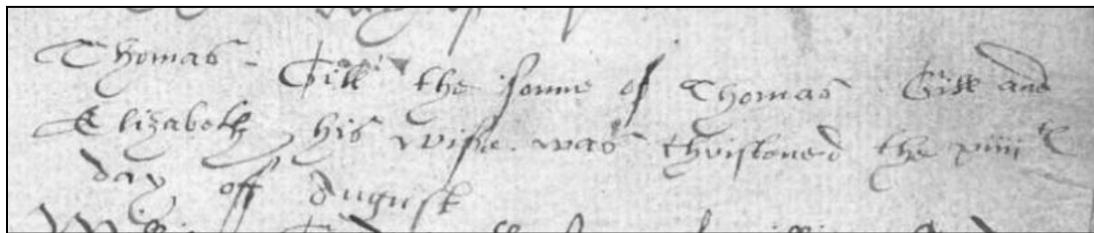 Thomas Gill the sonne of Thomas Gill and
Elizabeth his wife was christened the xiiii th
day off August